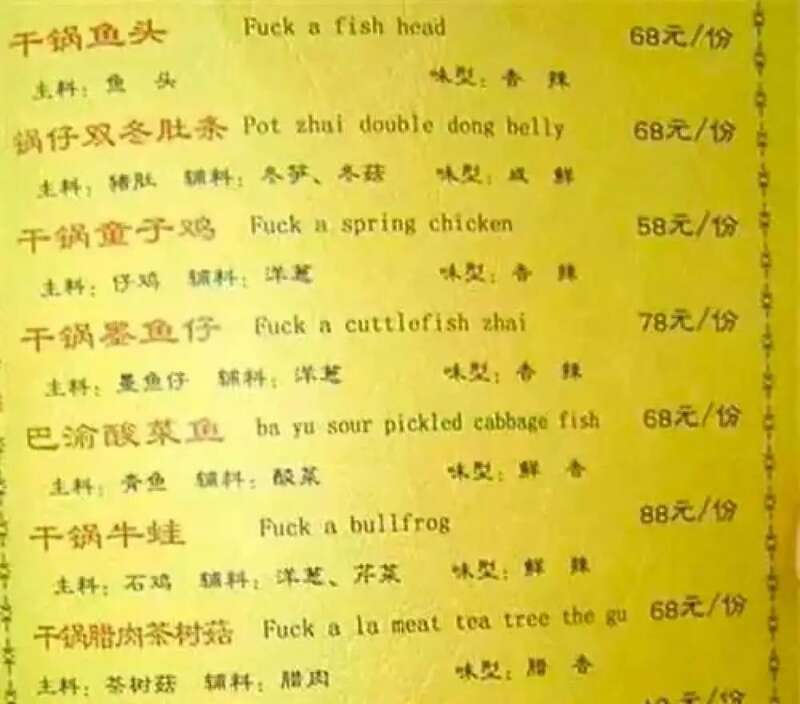 干锅鱼头 Fuck a fish head 68元/份
主料：鱼 头 味型：香 辣
锅仔双冬肚条 Pot zhai double dong belly 68元/份
主料：猪肚 辅料：冬笋、冬菇 味型：咸 鲜
干锅童子鸡 Fuck a spring chicken 58元/份
主料：仔鸡 辅料：洋葱 味型：香 辣
干锅墨鱼仔 Fuck a cuttlefish zhai 78元/份
主料：墨鱼仔 辅料：洋葱 味型：香 辣
巴渝酸菜鱼 ba yu sour pickled cabbage fish 68元/份
主料：青鱼 辅料：酸菜 味型：鲜 香
干锅牛蛙 Fuck a bullfrog 88元/份
主料：石鸡 辅料：洋葱、芹菜 味型：鲜 辣
干锅腊肉茶树菇 Fuck a la meat tea tree the gu 68元/份
主料：茶树菇 辅料：腊肉 味型：腊 香